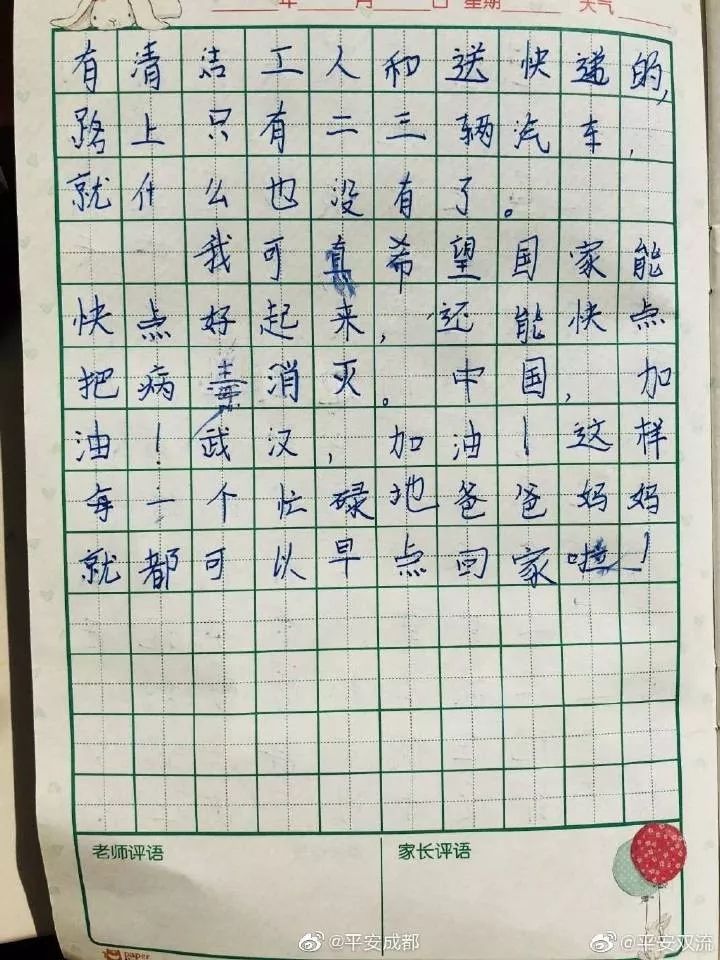 年 月 日 星期 天气
有清洁工人和送快递的,
路上只有二三辆汽车,
就什么也没有了。
我可真希望国家能
快点好起来,还能快点
把病毒消灭。中国,加
油!武汉,加油!这样
每一个忙碌地爸爸妈妈
就都可以早点回家啦!
老师评语
家长评语
paper
@平安成都
@平安双流